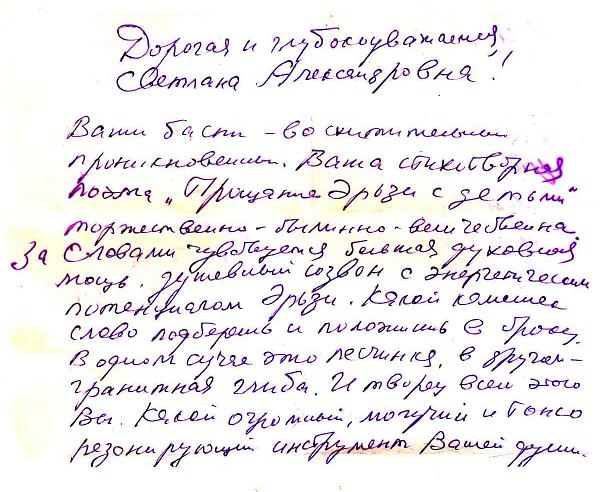 Дорогая и глубокоуважаемая
Светлана Александровна!!
Ваши басни - восхитительны
проникновенны. Ваша стихотворная
поэма „Прощание Эрьзи с детьми"
торжественно-былинно-величественна
За словами чувствуется большая духовная
мощь, душевный созвон с энергетическим
потенциалом Эрьзи. Какой камешек
слово подберешь и положишь в бросс
В одном случае это песчинка, в другом -
гранитная глыба. И творец всей этого
Вы. Какой огромный, могучий и тонко
резонирующий инструмент Вашей души.